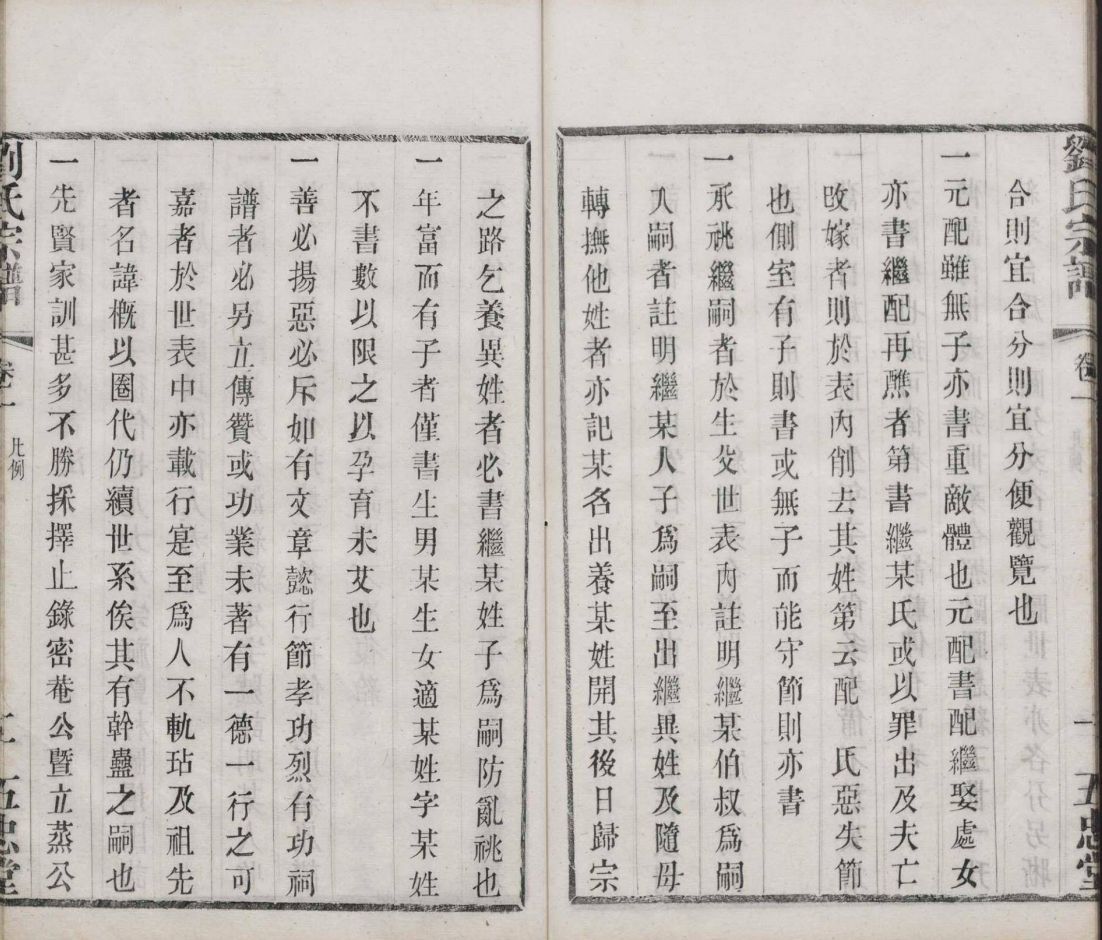 劉氏宗譜 卷一 一 五忠堂
合則宜合分則宜分便觀覽也
一元配雖無子亦書重敵體也元配書配繼娶處女
亦書繼配再醮者第書繼某氏或以罪出及夫亡
改嫁者則於表內削去其姓第云配 氏惡失節
也側室有子則書或無子而能守節則亦書
一承祧繼嗣者於生父世表內註明繼某伯叔爲嗣
入嗣者註明繼某人子爲嗣至出繼異姓及隨母
轉撫他姓者亦記某名出養某姓開其後日歸宗
之路乞養異姓者必書繼某姓子爲嗣防亂祧也
一年富而有子者僅書生男某生女適某姓字某姓
不書數以限之以孕育未艾也
一善必揚惡必斥如有文章懿行節孝功烈有功祠
譜者必另立傳贊或功業未著有一德一行之可
嘉者於世表中亦載行寔至爲人不軌玷及祖先
者名諱概以圈代仍續世系俟其有幹蠱之嗣也
一先賢家訓甚多不勝採擇止錄密菴公暨立蒸公
劉氏宗譜 卷一 凡例 五忠堂